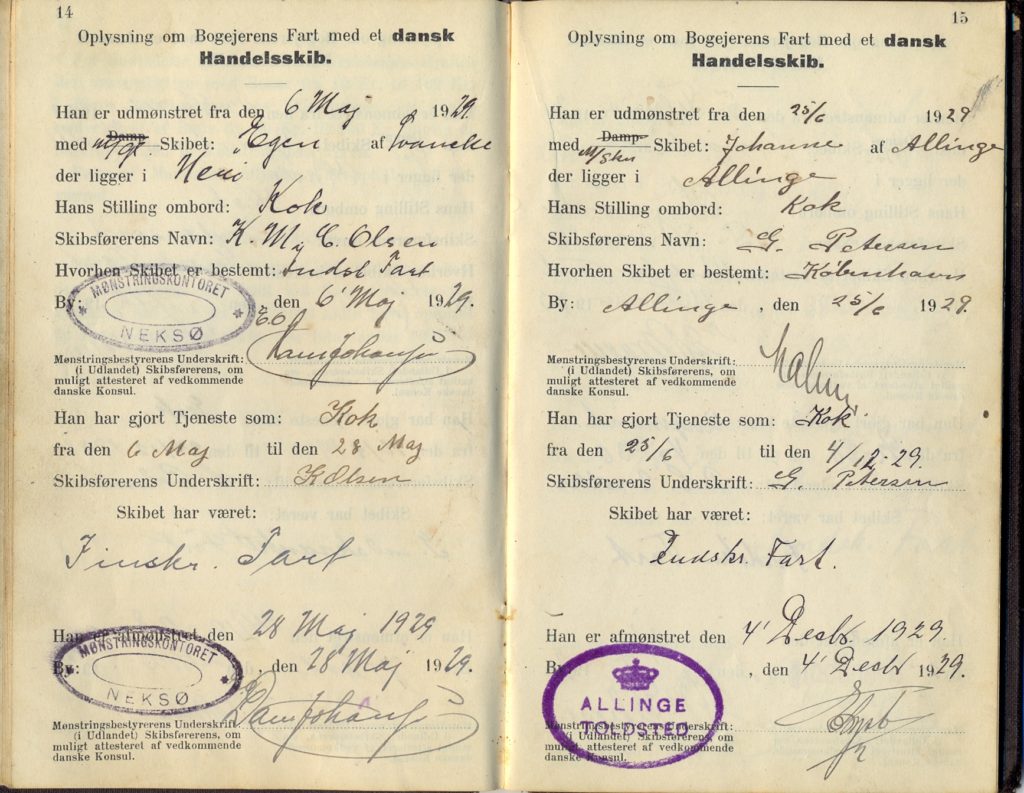 14
Oplysning om Bogejerens Fart med et dansk
Handelsskib.
Han er udmønstret fra den 6 Maj 1929.
med Damp Skibet: Egen af Svaneke
der ligger i Nexø
Hans Stilling ombord: Kok
Skibsførerens Navn: K. M. C. Olsen
Hvorhen Skibet er bestemt: Indsk Fart
By: , den 6' Maj 1929.
MØNSTRINGSKONTORET
NEKSØ
Mønstringsbestyrerens Underskrift:
(i Udlandet) Skibsførerens, om
muligt attesteret af vedkommende
danske Konsul.
Han har gjort Tjeneste som: Kok
fra den 6 Maj til den 28 Maj
Skibsførerens Underskrift: K Olsen
Skibet har været:
Indskr. Fart
Han er afmønstret den 28 Maj 1929
By: , den 28 Maj 1929.
MØNSTRINGSKONTORET
NEKSØ
Mønstringsbestyrerens Underskrift:
(i Udlandet) Skibsførerens, om
muligt attesteret af vedkommende
danske Konsul.
15
Oplysning om Bogejerens Fart med et dansk
Handelsskib.
Han er udmønstret fra den 25/6 1929
med Damp- M/skn Skibet: Johanne af Allinge
der ligger i Allinge
Hans Stilling ombord: Kok
Skibsførerens Navn: G. Petersen
Hvorhen Skibet er bestemt: København
By: Allinge, den 25/6 1929.
Mønstringsbestyrerens Underskrift:
(i Udlandet) Skibsførerens, om
muligt attesteret af vedkommende
danske Konsul.
Han har gjort Tjeneste som: Kok
fra den 25/6 til den 4/12-29.
Skibsførerens Underskrift: G. Petersen
Skibet har været:
Indskr. Fart.
Han er afmønstret den 4' Decbr. 1929.
By: , den 4' Decbr 1929.
ALLINGE
TOLDSTED
Mønstringsbestyrerens Underskrift:
(i Udlandet) Skibsførerens, om
muligt attesteret af vedkommende
danske Konsul.